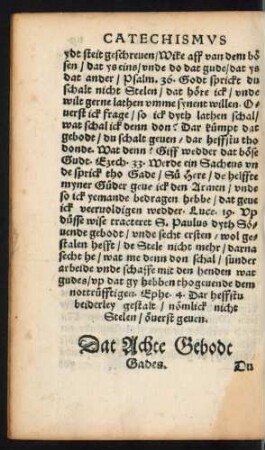 CATECHISMVS
ydt steit geschreuen/Wike aff van dem bö
sen/dat ys eins/vnde do dat gude/dat ys
dat ander/Psalm. 36. Godt sprickt du
schalt nicht Stelen/dat höre ick/vnde
wilt gerne lathen vmme synent willen. O=
uerst ick frage/so ick dyth lathen schal/
wat schal ick denn don? Dar kümpt dat
gebodt/du schalt geuen/dar heffstu tho
donde. Wat denn? Giff wedder dat böse
Gudt. Ezech. 33 Werde ein Sacheus vn
de sprick tho Gade/Sü Here/de helffte
myner Güder geue ick den Armen/vnde
so ick yemande bedragen hebbe/dat geue
ick veervoldigen wedder. Luce. 19. Vp
düsse wise tracteret S. Paulus dyth Sö=
uende gebodt/vnde secht ersten/wol ge=
stalen hefft/de Stele nicht mehr/darna
secht he/wat me denn don schal/sunder
arbeide vnde schaffe mit den henden wat
gudes/vp dat gy hebben thogeuende dem
nottrüfftigen. Ephe. 4. Dar heffstu
beiderley gestalt/nömlick nicht
Stelen/öuerst geuen.
Dat Achte Gebodt
Gades. Du